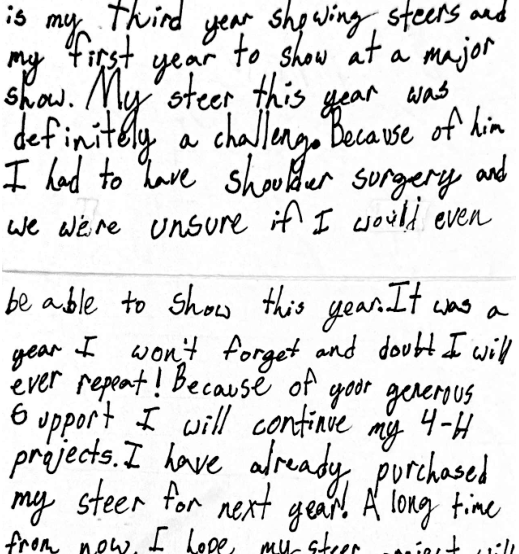 is my third year showing steers and
my first year to show at a major
show. My steer this year was
definitely a challeng. Because of him
I had to have shoulder surgery and
we were unsure if I would even
be able to show this year. It was a
year I won't forget and doubt I will
ever repeat! Because of your generous
support I will continue my 4-H
projects. I have already purchased
my steer for next year! A long time
from now, I hope, my steer project will